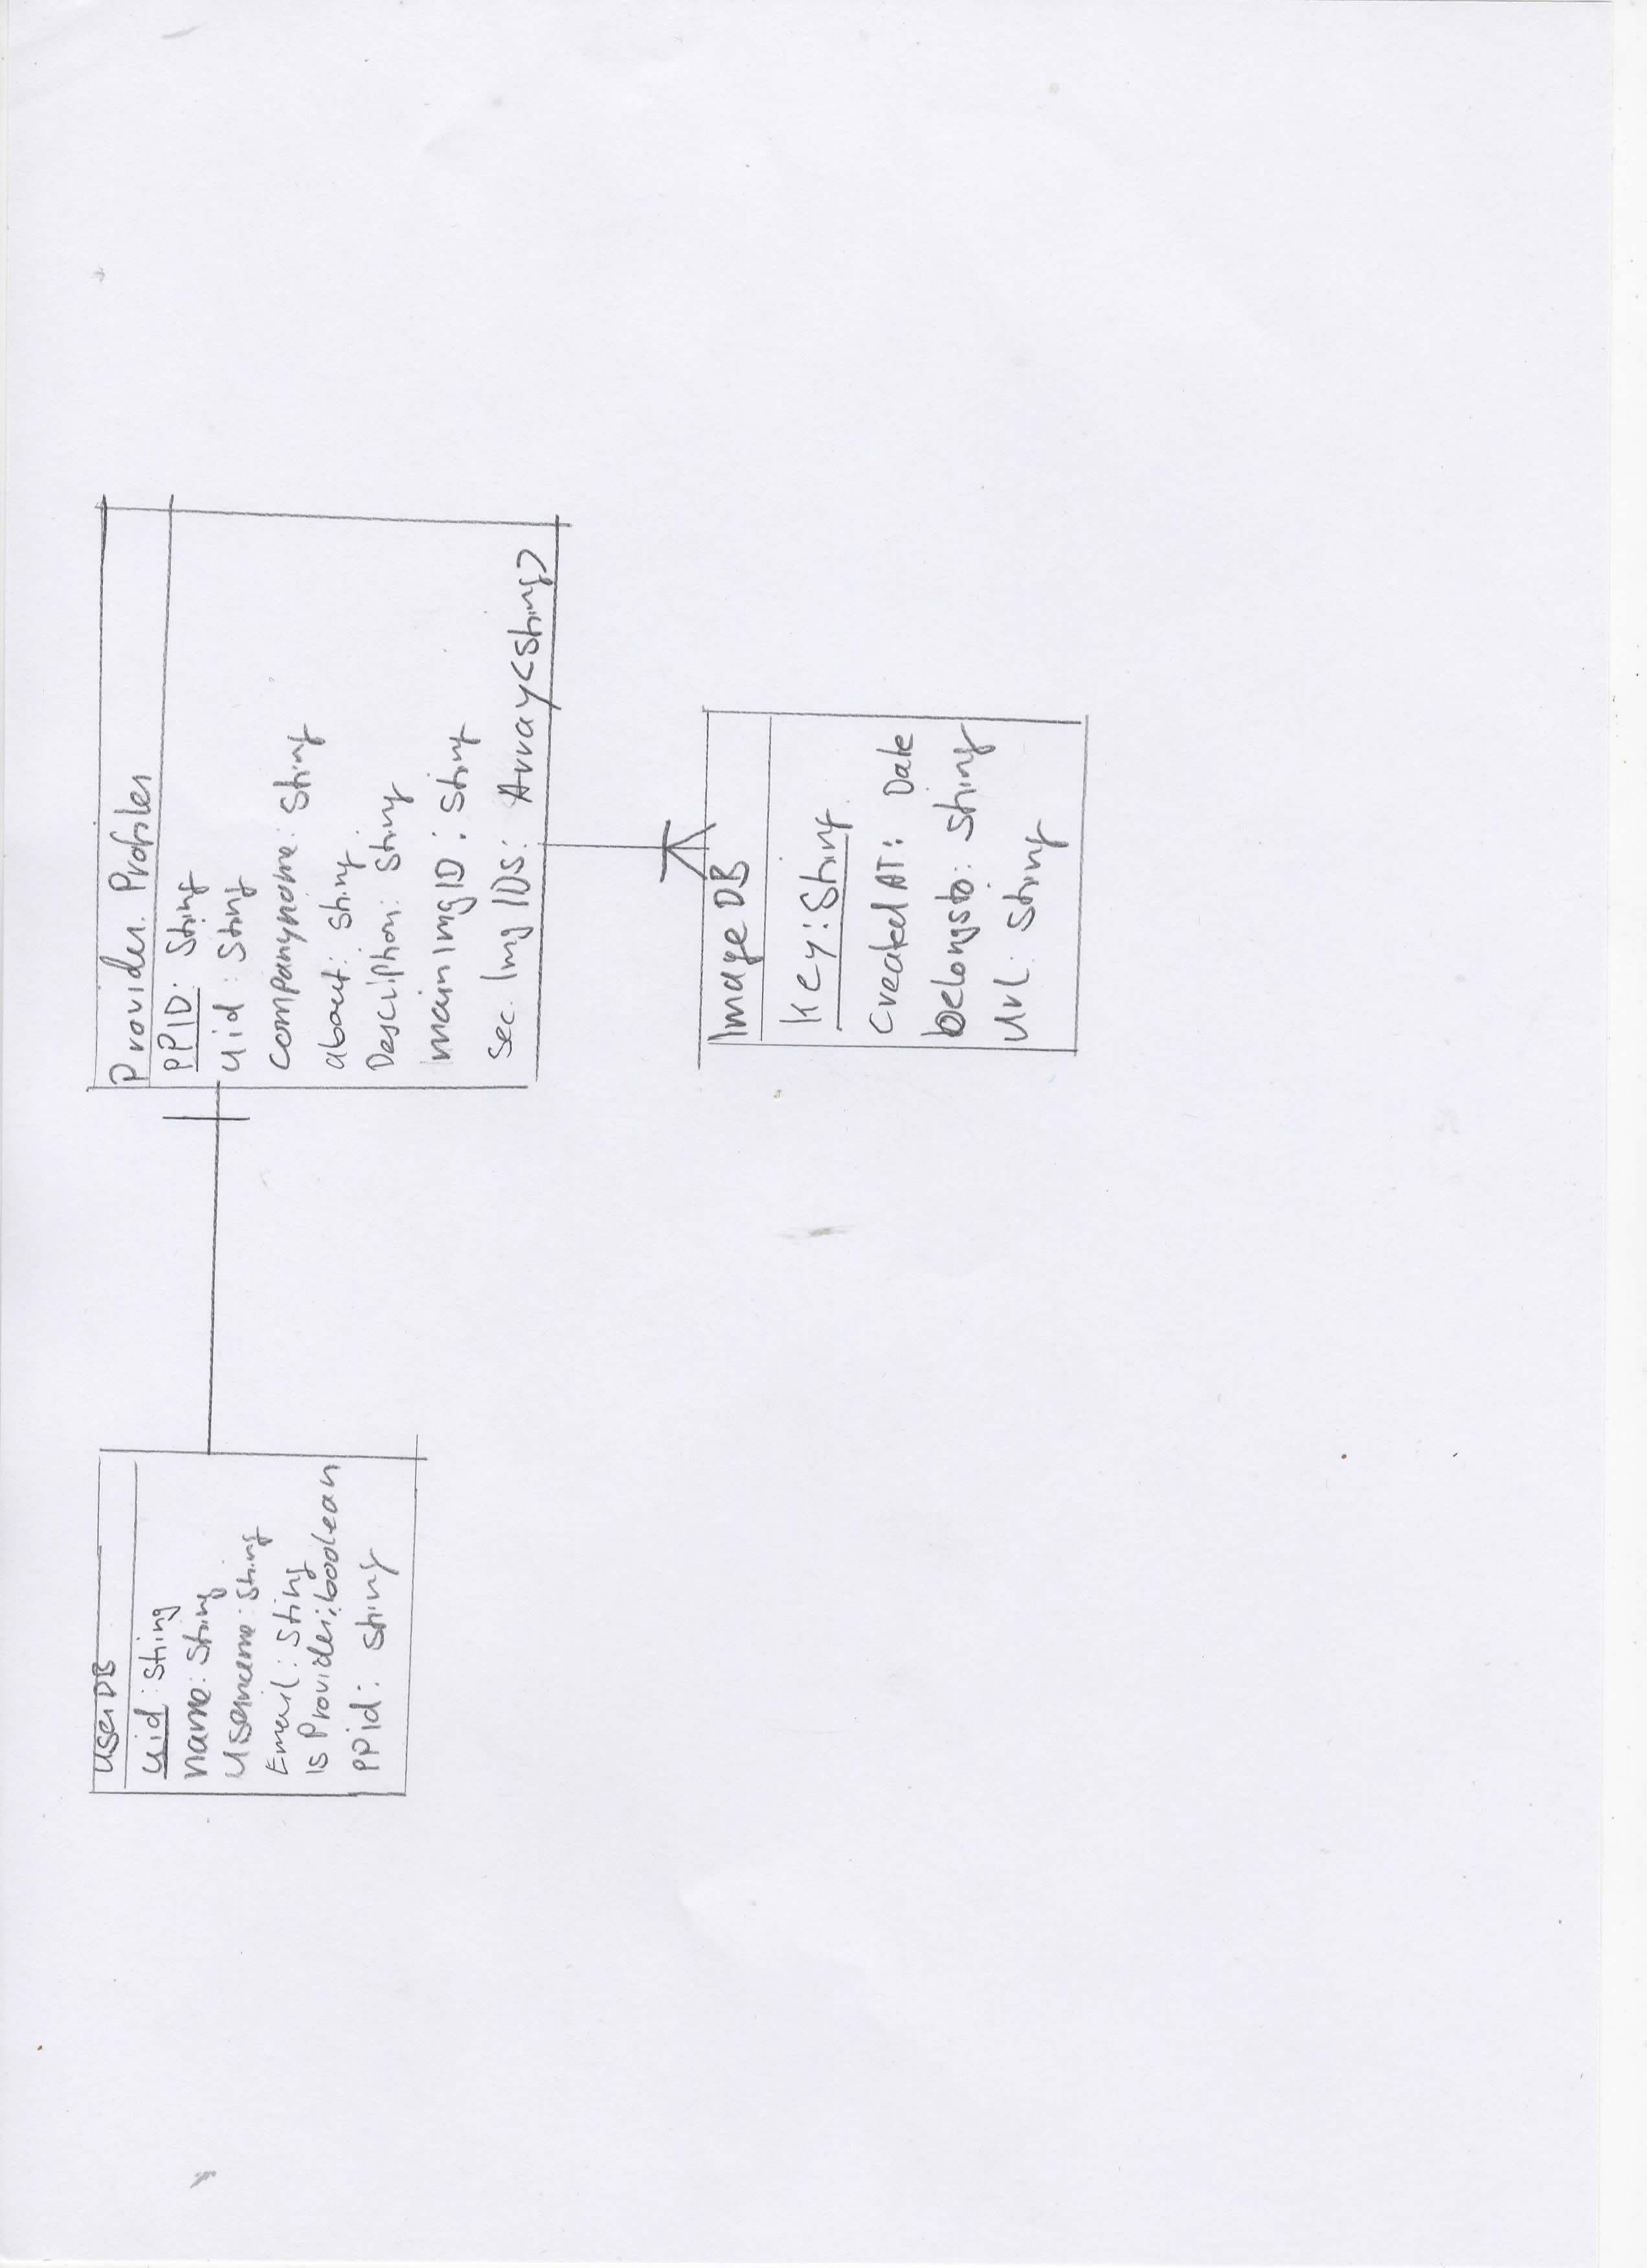 User DB
uid : String
name : String
Username : String
Email : String
Is Provider : boolean
PPid : String
Provider Profiles
PPID : String
uid : String
companyname : String
about : String
Description : String
mainImgID : String
Sec. Img IDs : Array<String>
Image DB
key : String
Created AT : Date
belongsto : String
Url : String